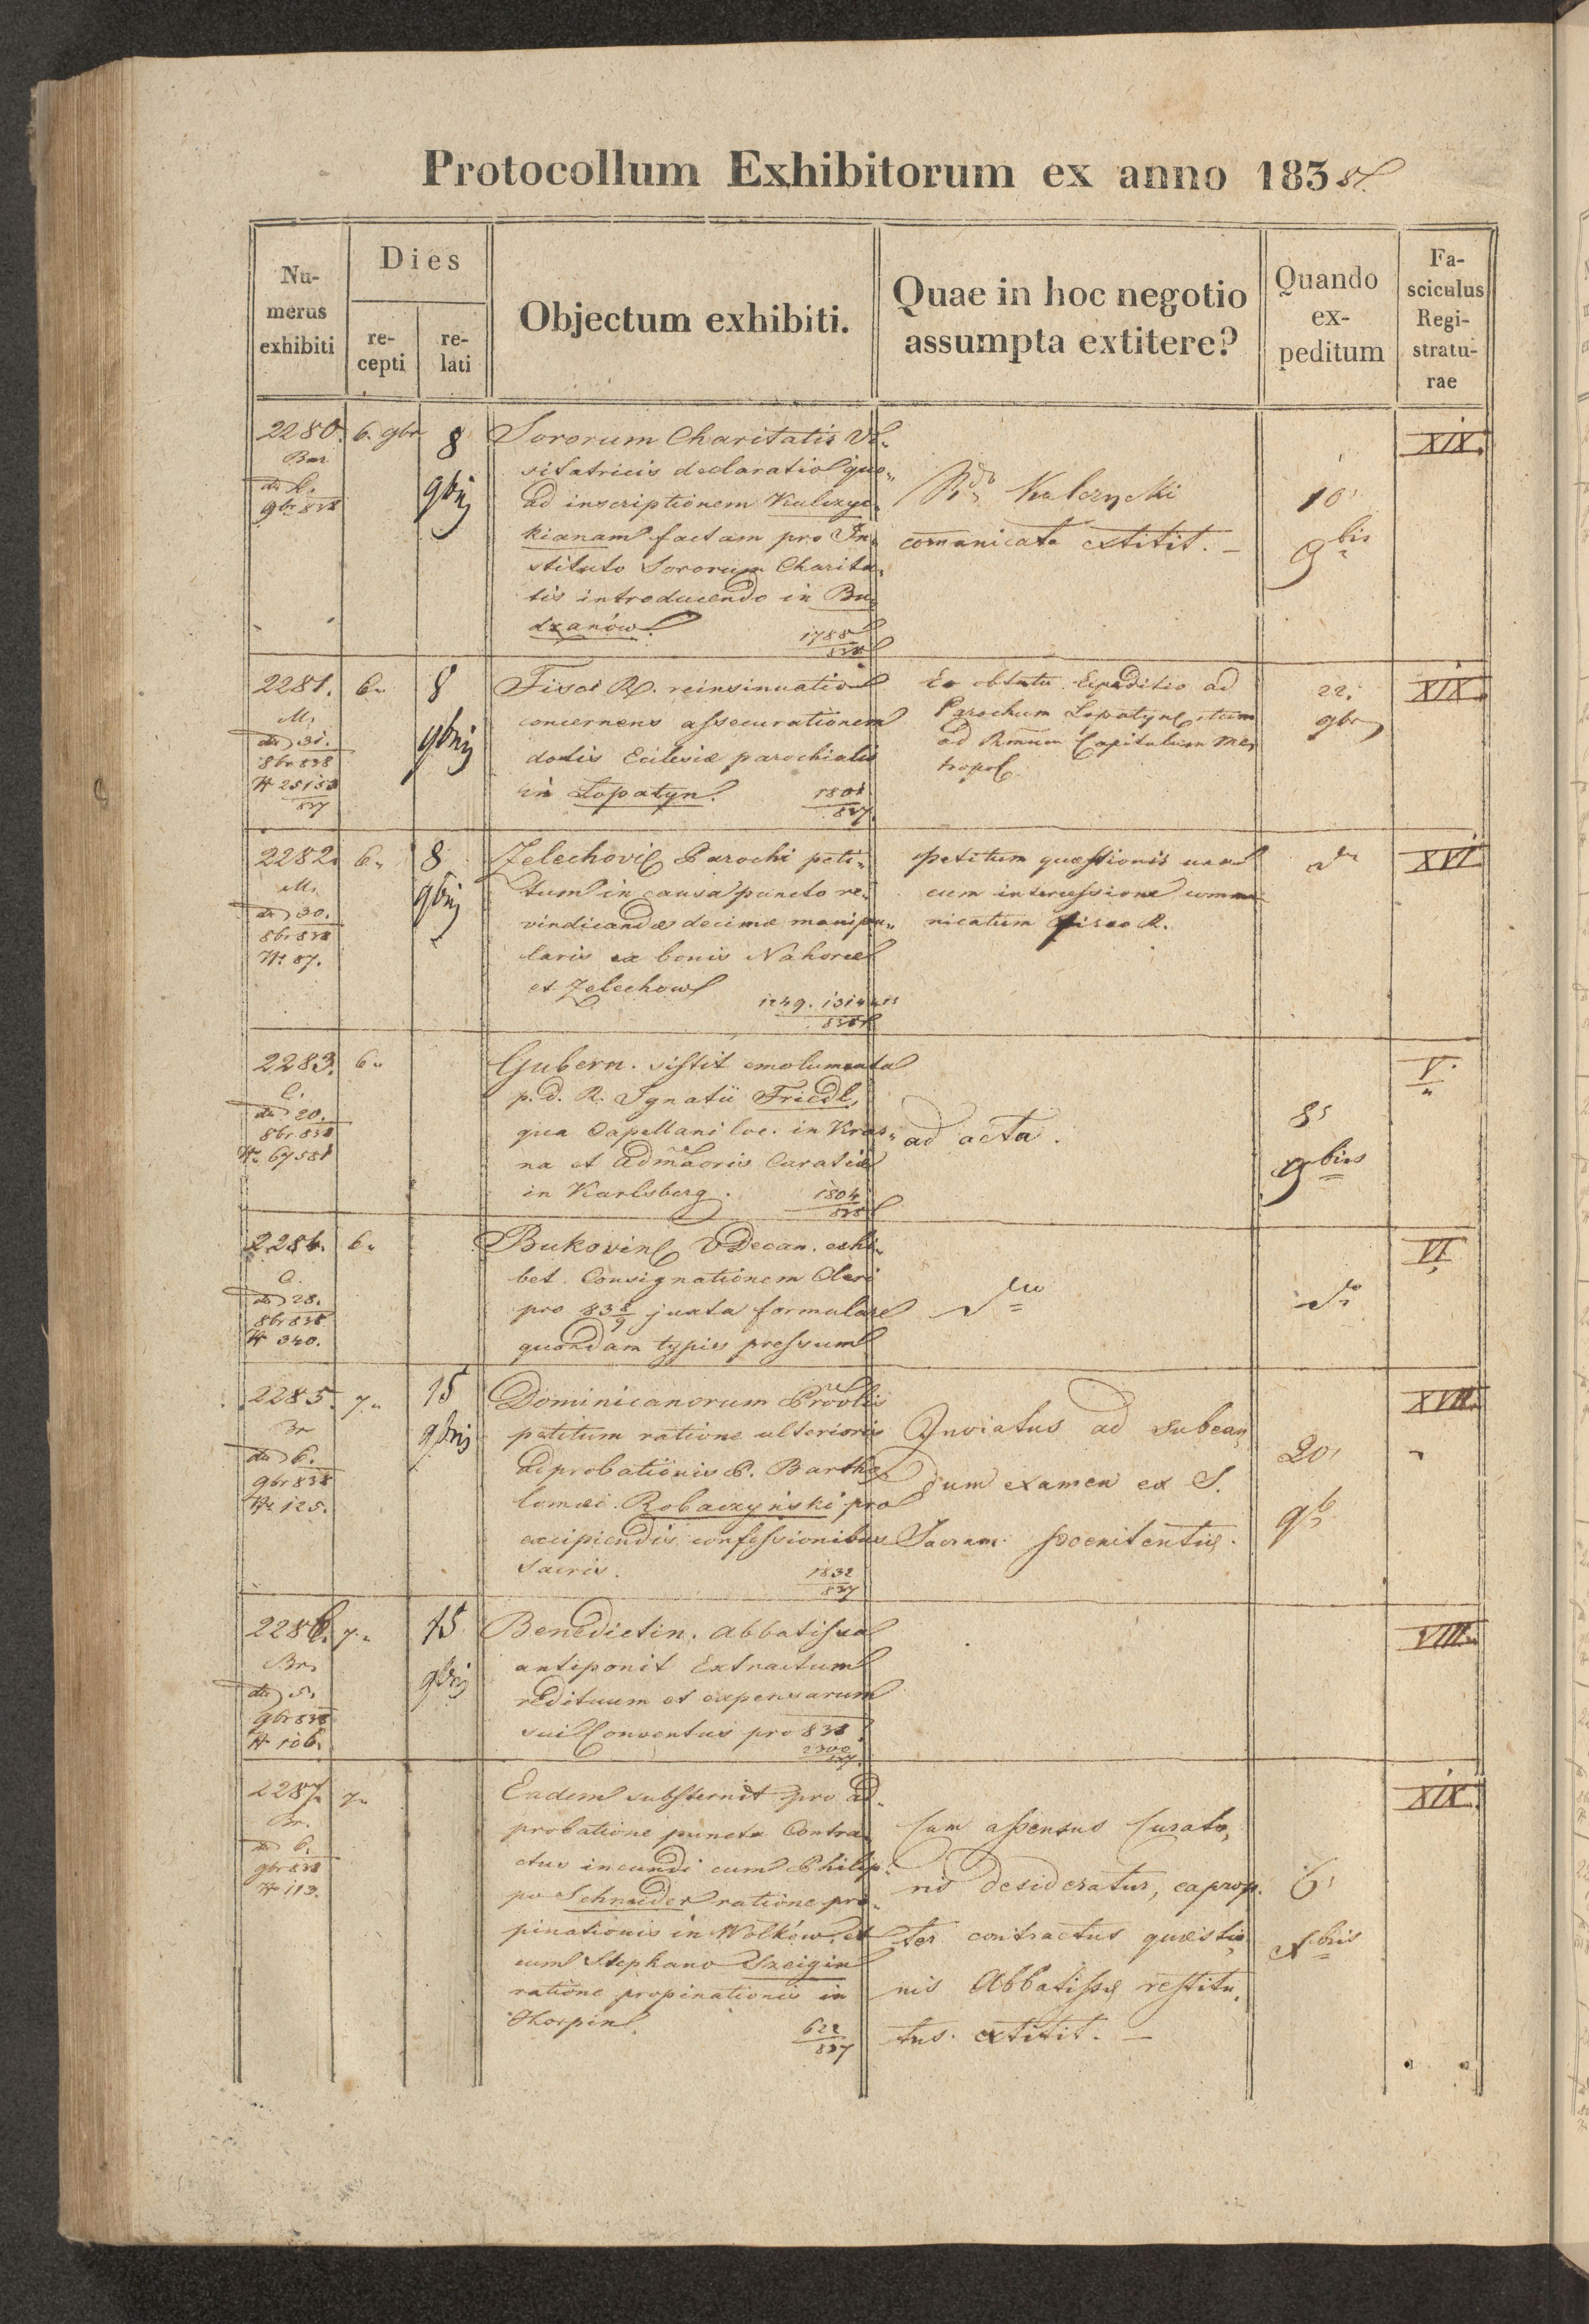 Protocollum Exhibitorum ex anno 1838.
Nu-
merus
exhibiti
Dies
re-
cepti
re-
lati
Objectum exhibiti.
Quae in hoc negotio
assumpta extitere?
Quando
ex-
peditum
Fa-
sciculus
Regi-
stratu-
rae
2280. 6. 9br 8
9br 838
9bris
Sororum Charitatis Vi-
sitatricis declaratio quo-
ad inscriptionem Kulczyc-
kianam factam pro In-
stituto Sororum Charita-
tis introducendo in Bu-
dzanów.
1788
838
Kulczycki
comunicata extitit. –
10
9bris
XIX.
2281. 6. 8
M.
dto 31.
8br 838
N 25153
837
9bris
Fisci R. reinsinuatio
concernens assecurationem
dotis Ecclesiæ parochialis
in Lopatyn.
1801
837.
Ex obtutu Expeditio ad
Parochum Lopatyn itum
ad Rmum Capitulum Me-
tropol.
22.
9br
XIX.
2282. 6. 8
M.
dto 30.
8br 838
N 87.
9bris
Zelechovi Parochi peti-
tum in causa puncto re-
vindicandæ decimæ manipu-
laris ex bonis Nahorce
et Zelechow
1249. 1314
838
petitum quæstionis una
cum intercessione commu-
nicatum Fisco R.
dto
XVI
2283. 6.
C.
dto 20.
8br 838
N 67581
Gubern. sistit emolumenta
p. d. R. Ignatii Friedl,
qua Capellani loc. in Kras-
na et Admaoris Curatiæ
in Karlsberg.
1804
838
ad acta.
8
9bris
V.
2284. 6.
C.
dto 28.
8br 838
N 340.
Bukovin VDecan. exhi-
bet Consignationem Cleri
pro 838/9 juxta formulare
quondam typis pressum
dto
dto
VI
2285. 7. 15
Br
dto 6.
9br 838
N 125.
9bris
Dominicanorum Provlis
petitum ratione ulterioris
adprobationis P. Bartho-
lomæi Robaczyński pro
excipiendis confessionibus
sacris.
1832
837
Inviatus ad subeun-
dum examen ex S.
Sacram. poenitentiæ.
20
9b
XVII.
2286. 7. 15
Br.
dto 5.
9br 838
N 106.
9bris
Benedictin. Abbatissa
anteponit Extractum
redituum et expensarum
sui Conventus pro 838.
2300
837.
VIII.
2287. 7.
Br.
dto 6.
9br 838
N 113.
Eadem substernit pro ad-
probatione puncta Contra-
ctus ineundi cum Philip-
po Schneider ratione pro-
pinationis in Wolków, et
cum Stephano Szeigin
ratione propinationis in
Chorpin.
622
837
Cum assensus Curato-
ris desideratur, eaprop-
ter contractus quæstio-
nis Abbatissæ restitu-
tus extitit. –
6
Xbris
XIX.